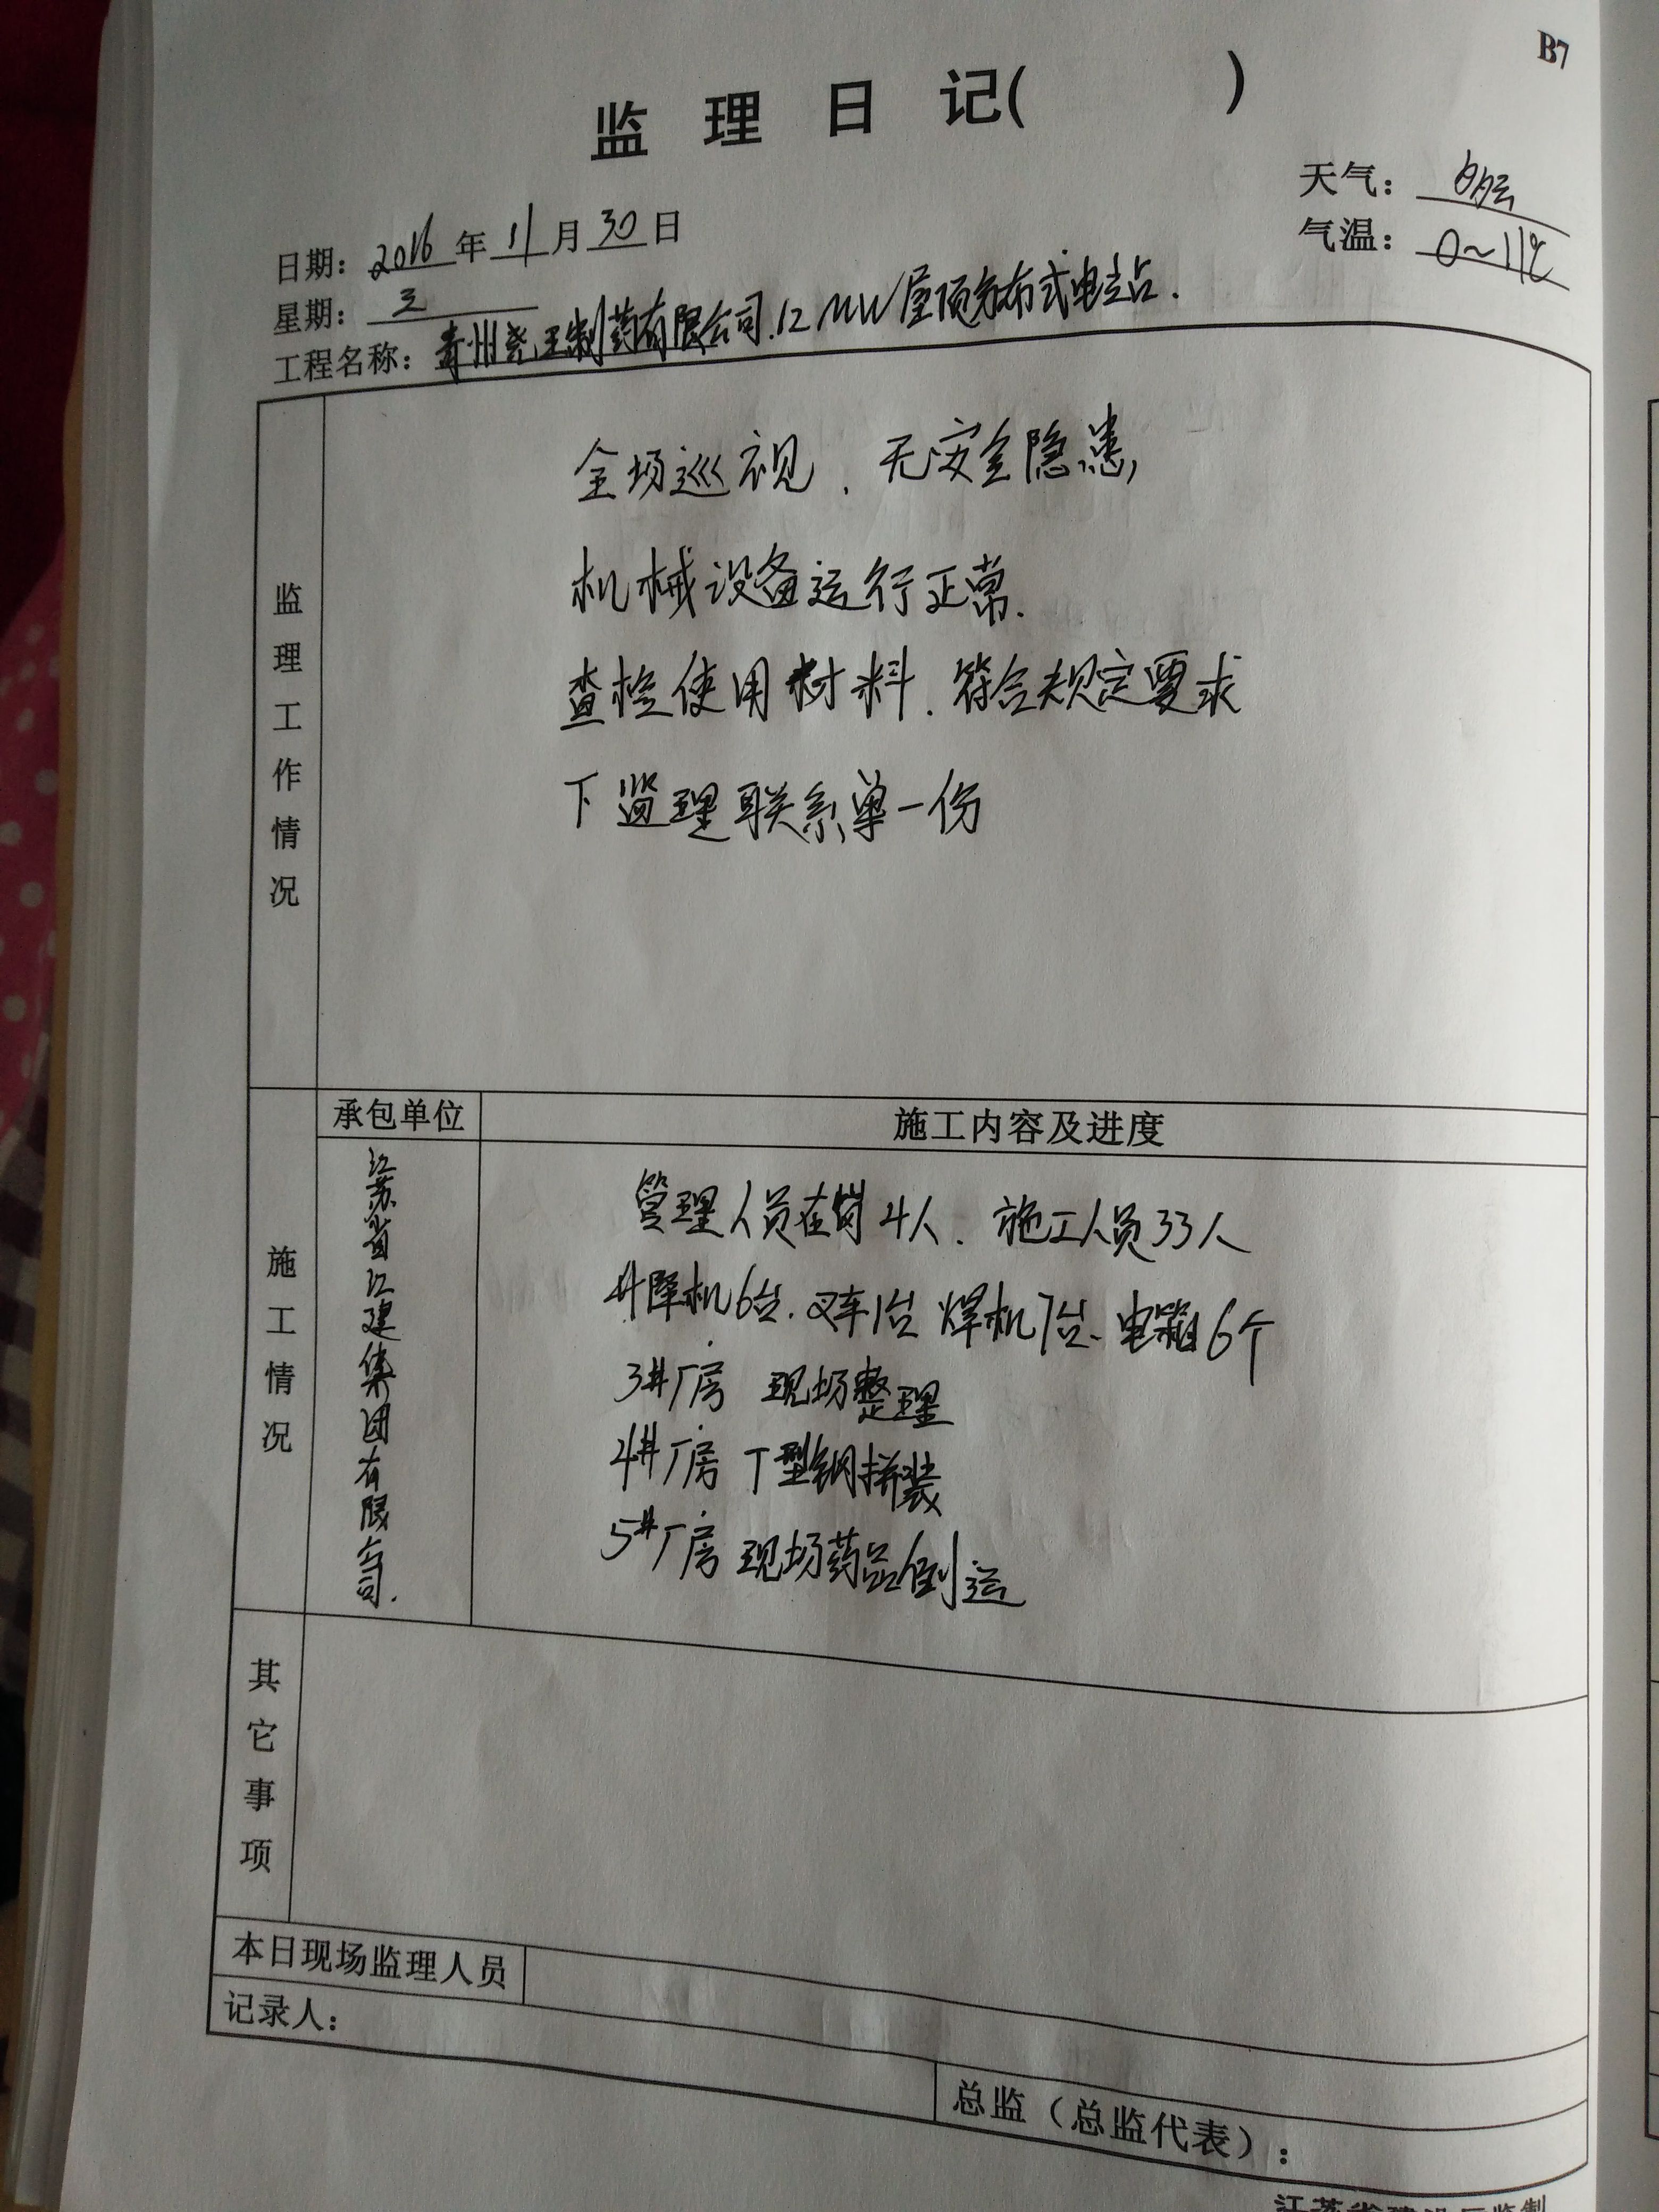 B7
监理日记(      )
天气：
气温：0～11℃
日期：2016年11月30日
星期：三
工程名称：青州尧王制药有限公司.12MW屋顶分布式电站.
监理工作情况
全场巡视.无安全隐患,
机械设备运行正常.
查检使用材料.符合规定要求
下监理联系单一份
施工情况
承包单位
施工内容及进度
江苏省江建集团有限公司.
管理人员在岗4人.施工人员33人
升降机6台.叉车1台 焊机7台、电箱6个
3#厂房 现场整理
4#厂房 T型钢拼装
5#厂房 现场药品倒运
其它事项
本日现场监理人员
记录人：
总监（总监代表）：
江苏省建设厅监制